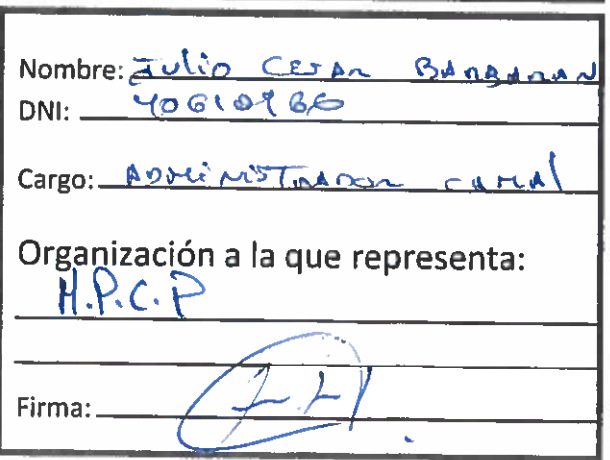 Nombre: Julio Cesar Barbaran
DNI: 40610966
Cargo: Administrador Camal
Organización a la que representa:
M.P.C.P
Firma: